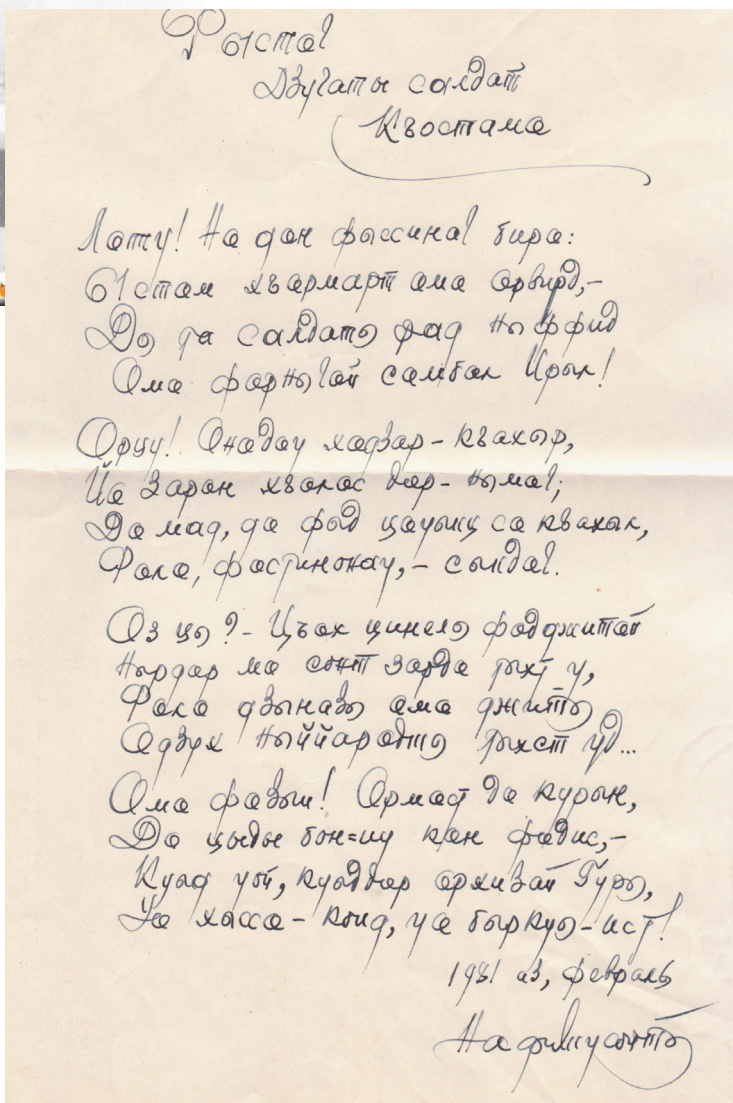 Фыстæг
Дзугаты салдат
Къостамæ
Лæппу! Нæ дæн фыссинаг бирæ:
Ыстæм хъæрмæрт æмæ æрвырд,-
Ды дæ салдаты рад ныффид
Æмæ фæрныгæй сæмбæл Ирыл!
Æрцу! Æнæдæу хæдзар - къæхыр,
Йæ зарæн хъæлæс дæр - нымæг;
Дæ мад, дæ фыд цæуынц сæ къахыл,
Фæлæ, фæстинонау,- сындæг.
Æз цы? - Цъæх цинелы фæдджитæй
Нырдæр мæ сонт зæрдæ тыхт у,
Фæлæ дзыназы æмæ джитты
Æдзух ныййарæджы тыхст уд...
Æмæ фæзын! Æрмæст дæ курын,
Дæ цыды бон-иу кæн фæдис,-
Куыд уой, куыддæр æрхизай Гуры,
Уæ хæссæ - конд, уæ быркуы - ист!
1981 аз, февраль